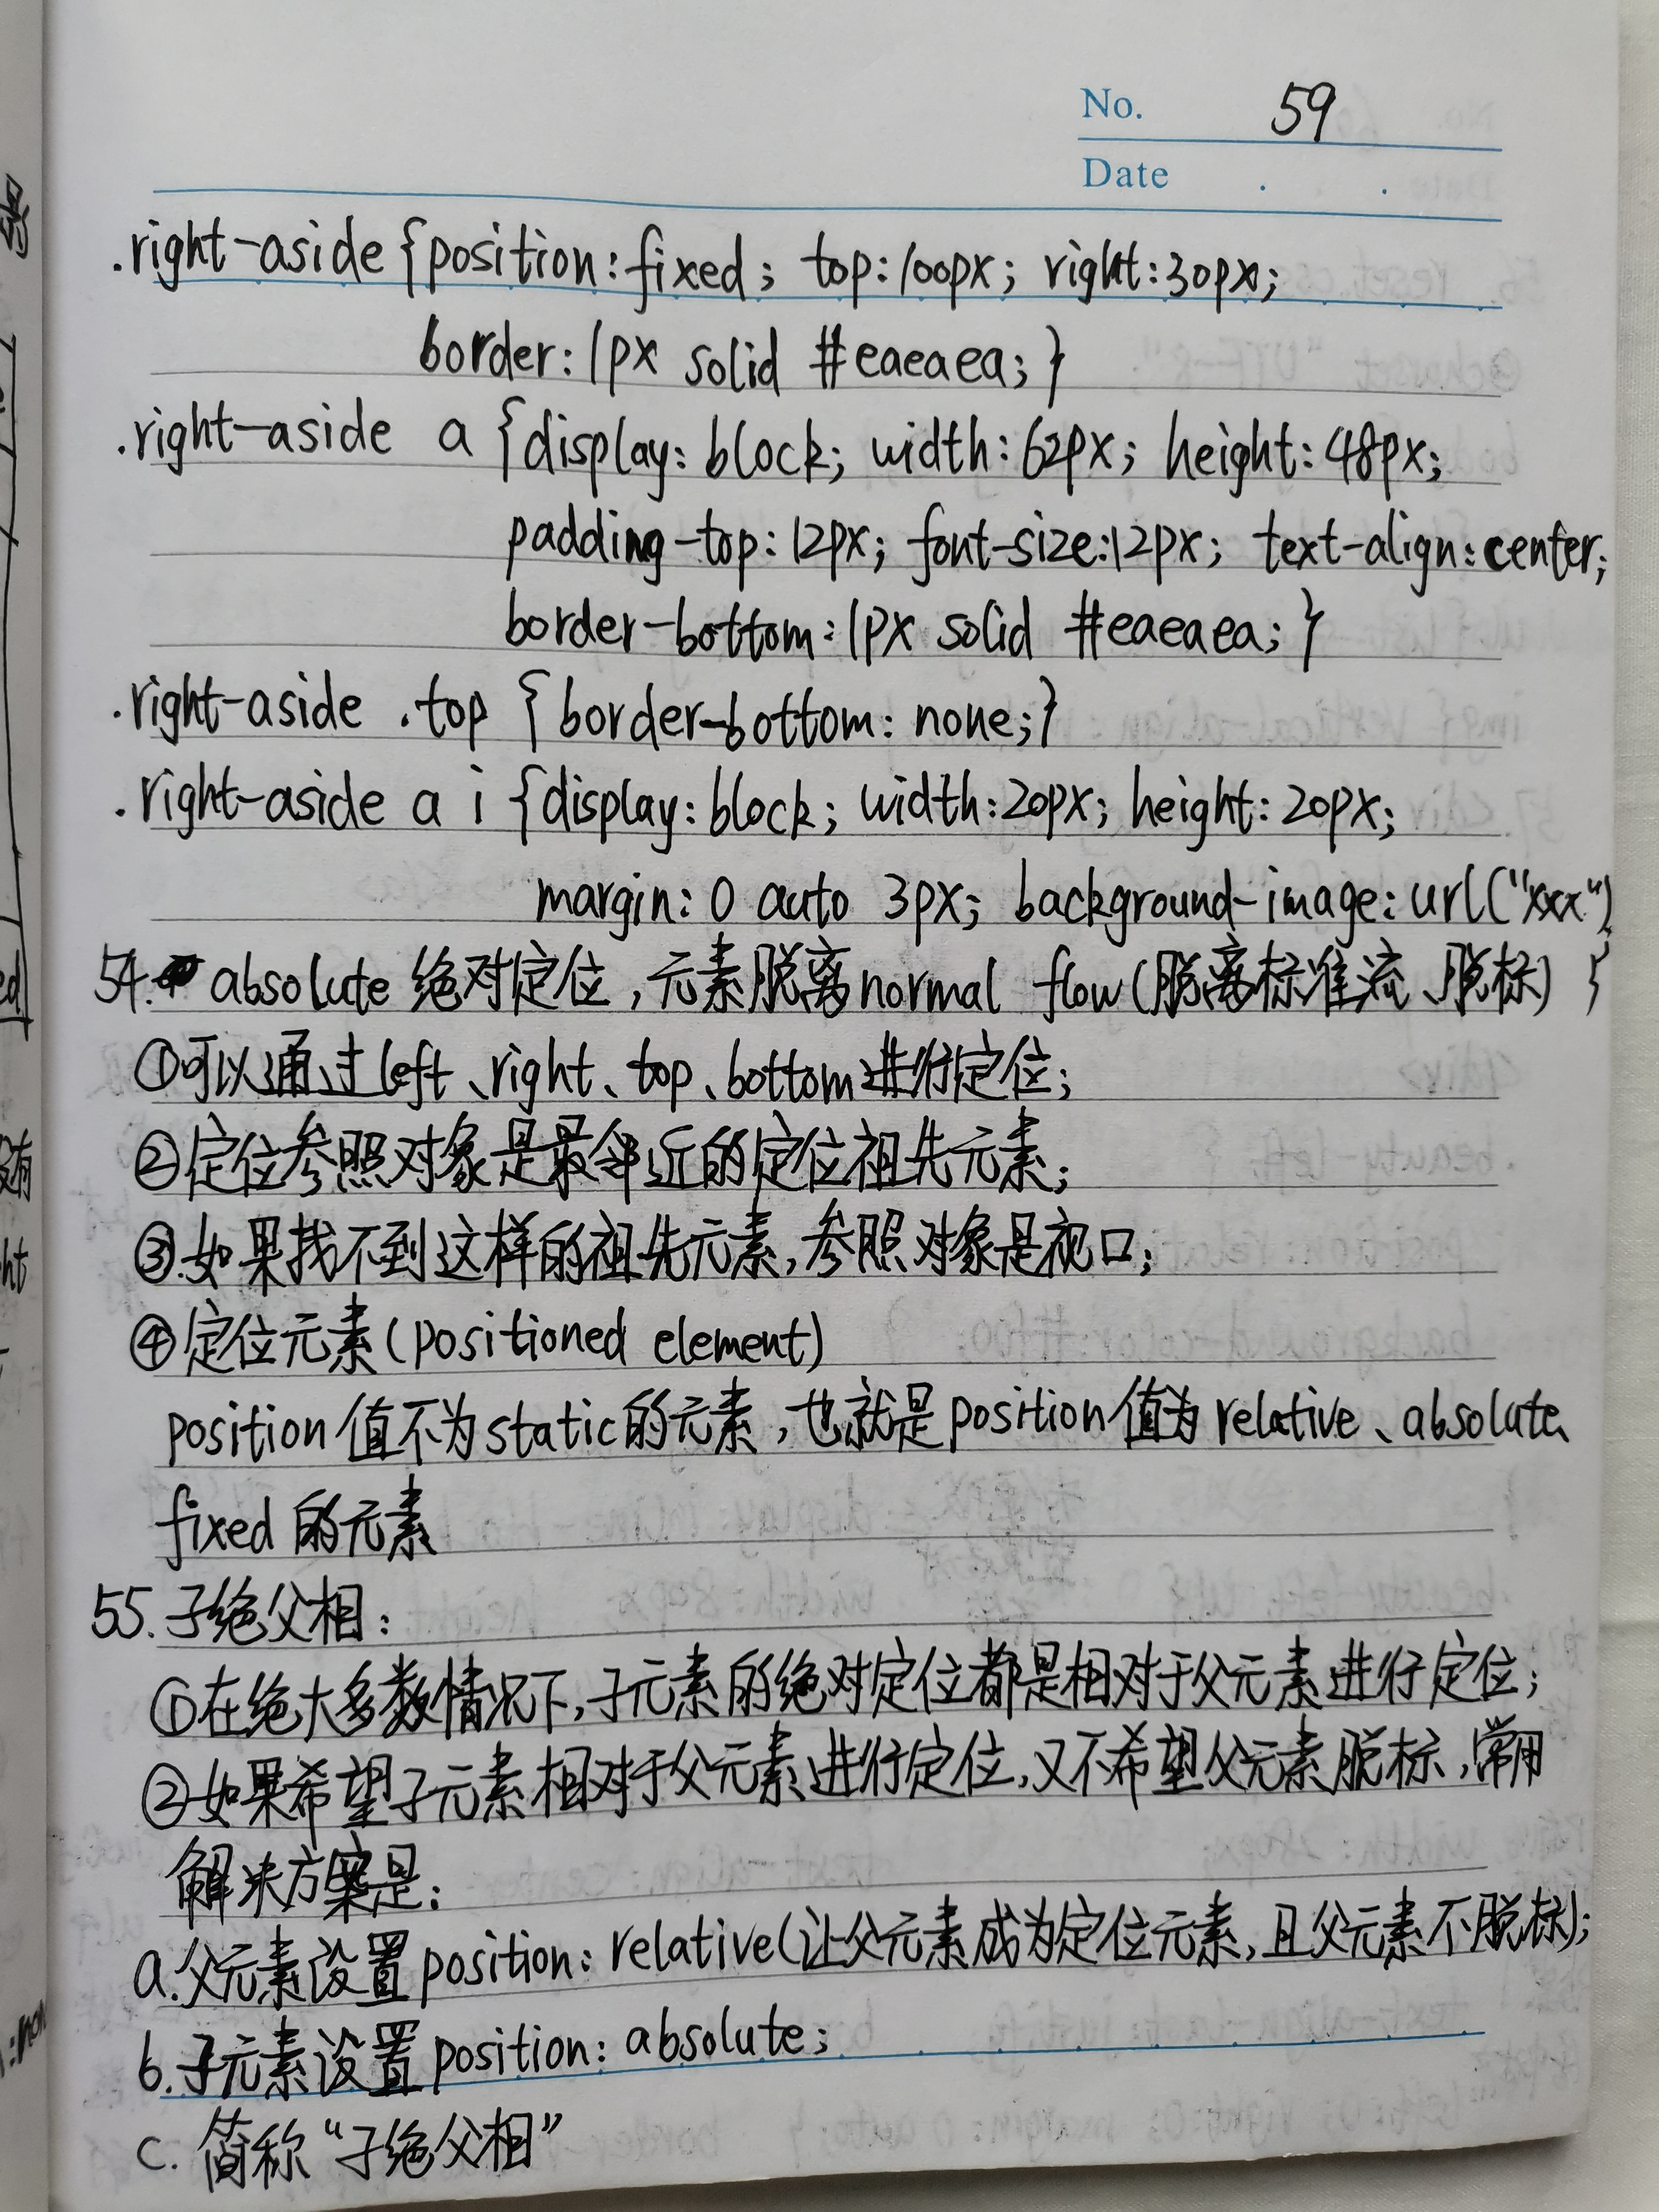 No. 59
Date . .
.right-aside {position:fixed; top:100px; right:30px;
border:1px solid #eaeaea;}
.right-aside a {display: block; width:62px; height:48px;
padding-top:12px; font-size:12px; text-align:center;
border-bottom:1px solid #eaeaea;}
.right-aside .top {border-bottom: none;}
.right-aside a i {display:block; width:20px; height:20px;
margin: 0 auto 3px; background-image: url("xxx")
54. absolute 绝对定位,元素脱离normal flow(脱离标准流、脱标) }
①可以通过left、right、top、bottom进行定位;
②定位参照对象是最邻近的定位祖先元素;
③如果找不到这样的祖先元素,参照对象是视口;
④定位元素(positioned element)
position值不为static的元素,也就是position值为relative、absolute、
fixed的元素
55.子绝父相:
①在绝大多数情况下,子元素的绝对定位都是相对于父元素进行定位;
②如果希望子元素相对于父元素进行定位,又不希望父元素脱标,常用
解决方案是:
a.父元素设置position: relative(让父元素成为定位元素,且父元素不脱标);
b.子元素设置position: absolute;
c. 简称“子绝父相”